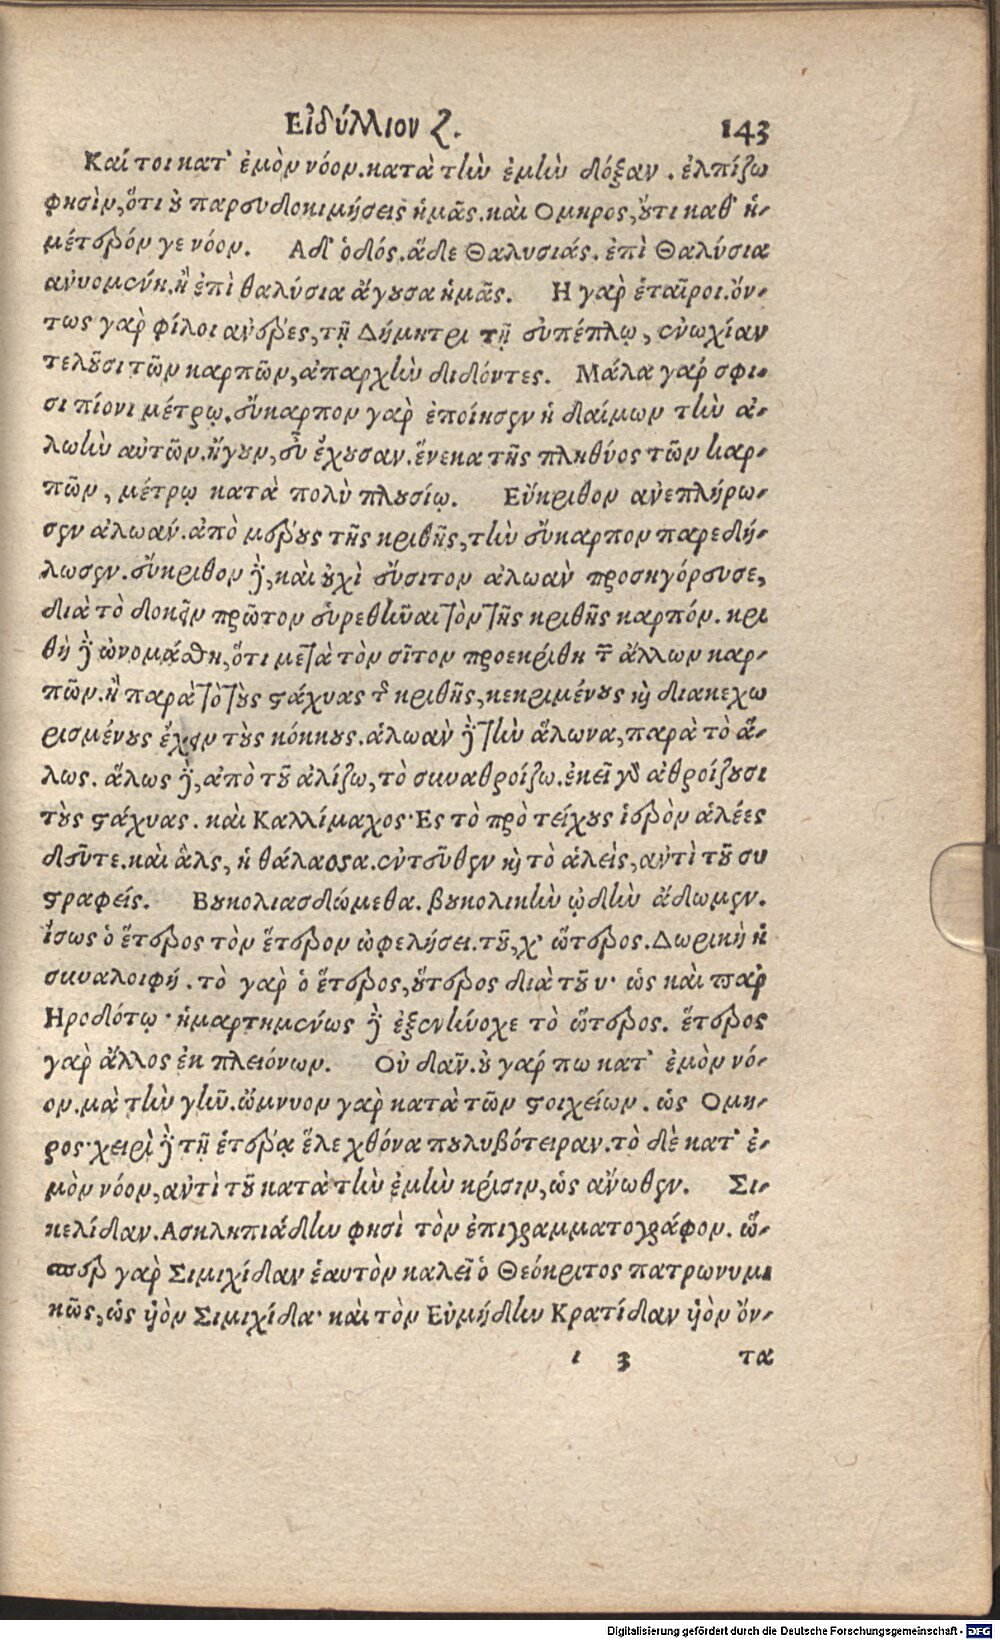 Εἰδύλλιον ζ. 143
Καί τοι κατ' ἐμὸν νόον. κατὰ τὴν ἐμὴν δόξαν. ἐλπίζω
φησὶν, ὅτι οὐ παρευδοκιμήσεις ἡμᾶς. καὶ Ομηρος, οὔτι καθ' ἡ-
μέτερόν γε νόον. Αδ' ὁδός. ἅδε Θαλυσιάς. ἐπὶ Θαλύσια
ἀνυομένη. ἢ ἐπὶ θαλύσια ἄγουσα ἡμᾶς. Η γὰρ ἑταῖροι. ὄν-
τως γὰρ φίλοι ἄνδρες, τῇ Δήμητρι τῇ εὐπέπλῳ, εὐωχίαν
τελοῦσι τῶν καρπῶν, ἀπαρχὴν διδόντες. Μάλα γάρ σφι-
σι πίονι μέτρῳ. εὔκαρπον γὰρ ἐποίησεν ἡ δαίμων τὴν ἀ-
λωὴν αὐτῶν. ἤγουν, εὖ ἔχουσαν. ἕνεκα τῆς πληθύος τῶν καρ-
πῶν, μέτρῳ κατὰ πολὺ πλουσίῳ. Εὔκριθον ἀνεπλήρω-
σεν ἀλωάν. ἀπὸ μέρους τῆς κριθῆς, τὴν εὔκαρπον παρεδή-
λωσεν. εὔκριθον δὲ, καὶ οὐχὶ εὔσιτον ἀλωὰν προσηγόρευσε,
διὰ τὸ δοκεῖν πρῶτον εὑρεθῆναι τὸν τῆς κριθῆς καρπόν. κρι
θὴ δὲ ὠνομάσθη, ὅτι μετὰ τὸν σῖτον προεκρίθη τῶν ἄλλων καρ-
πῶν. ἢ παρὰ τὸ τοὺς στάχυας τῆς κριθῆς, κεκριμένους καὶ διακεχω
ρισμένους ἔχειν τοὺς κόκκους. ἁλωὰν δὲ τὴν ἅλωνα, παρὰ τὸ ἅ-
λως. ἅλως δὲ, ἀπὸ τοῦ ἁλίζω, τὸ συναθροίζω. ἐκεῖ γὰρ ἀθροίζουσι
τοὺς στάχυας. καὶ Καλλίμαχος· Ες τὸ πρὸ τείχους ἱερὸν ἁλέες
δεῦτε. καὶ ἃλς, ἡ θάλασσα. ἐντεῦθεν καὶ τὸ ἁλεὶς, ἀντὶ τοῦ συ
στραφείς. Βουκολιασδώμεθα. βουκολικὴν ᾠδὴν ᾄδωμεν.
ἴσως ὁ ἕτερος τὸν ἕτερον ὠφελήσει. τοῦ, χ' ὥτερος. Δωρικὴ ἡ
συναλοιφή. τὸ γὰρ ὁ ἕτερος, οὕτερος διὰ τοῦ υ· ὡς καὶ παρ
Ηροδότῳ· ἡμαρτημένως δὲ ἐξενήνοχε τὸ ὥτερος. ἕτερος
γὰρ ἄλλος ἐκ πλειόνων. Οὐ δᾶν. οὐ γάρ πω κατ' ἐμὸν νό-
ον. μὰ τὴν γῆν. ὤμνυον γὰρ κατὰ τῶν στοιχείων. ὡς Ομη-
ρος· χειρὶ δὲ τῇ ἑτέρᾳ ἕλε χθόνα πουλυβότειραν. τὸ δὲ κατ' ἐ-
μὸν νόον, ἀντὶ τοῦ κατὰ τὴν ἐμὴν κρίσιν, ὡς ἄνωθεν. Σι-
κελίδαν. Ασκληπιάδην φησὶ τὸν ἐπιγραμματογράφον. ὥ-
σπερ γὰρ Σιμιχίδαν ἑαυτὸν καλεῖ ὁ Θεόκριτος πατρωνυμι
κῶς, ὡς υἱὸν Σιμιχίδα· καὶ τὸν Εὐμήδην Κρατίδαν υἱὸν ὄν-
ι 3 τα
Digitalisierung gefördert durch die Deutsche Forschungsgemeinschaft - DFG